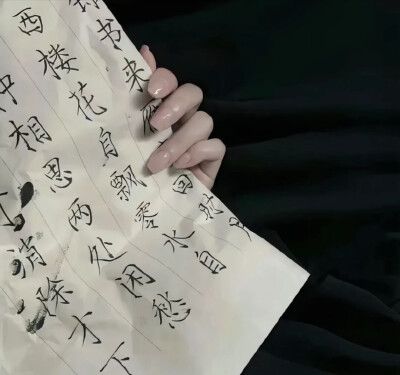 书来雁回时
西楼花自飘零水自
相思两处闲愁
消除才下